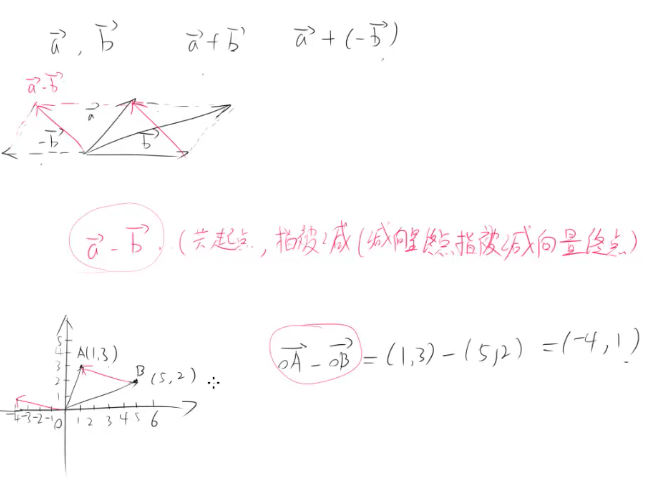 a⃗, b⃗ a⃗+b⃗ a⃗+(-b⃗)
a⃗-b⃗
a⃗
-b⃗ b⃗
a⃗-b⃗. (共起点,指被减(减向量终点指被减向量终点)
5
4 A(1,3)
3
2 B (5,2)
1
-4 -3 -2 -1 0 1 2 3 4 5 6
OA⃗ - OB⃗ = (1,3) - (5,2) = (-4,1)